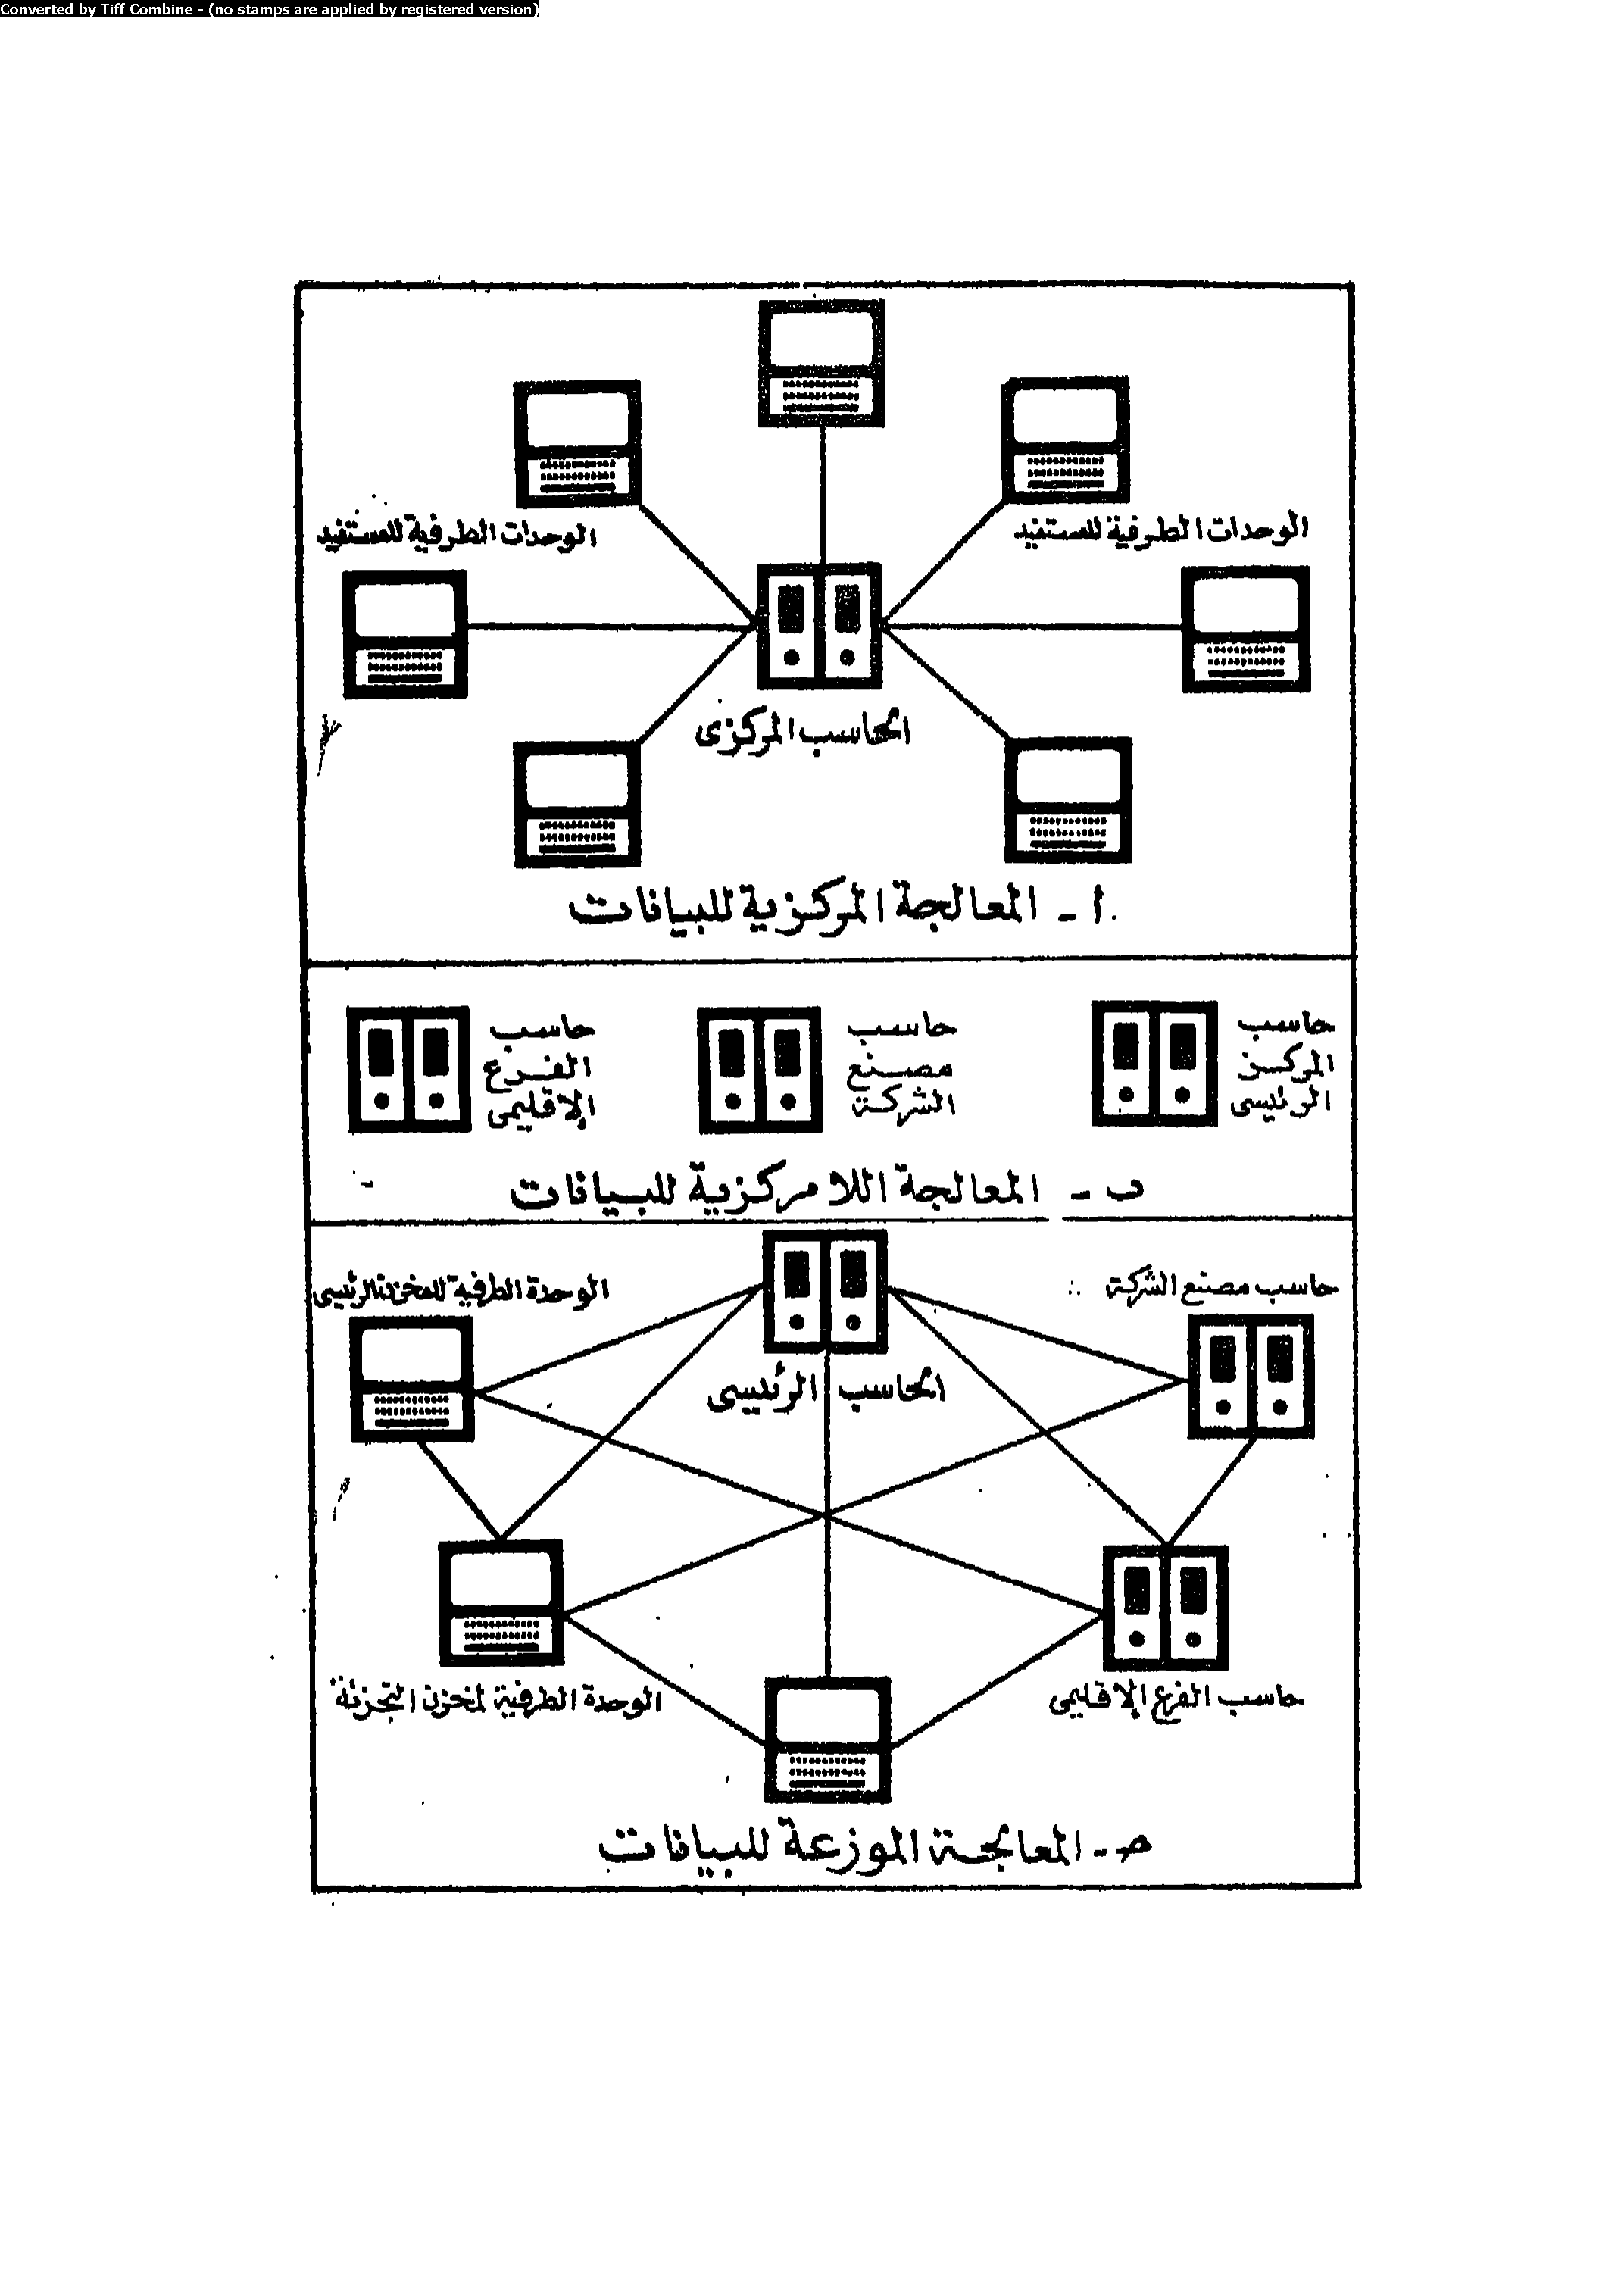 Converted by Tiff Combine - (no stamps are applied by registered version)
الوحدات الطرفية للمستفيد
الوحدات الطرفية للمستفيد
الحاسب المركزى
أ - المعالجة المركزية للبيانات
حاسب
المركز
الرئيسى
حاسب
مصنع
الشركة
حاسب
الفرع
الإقليمى
ب - المعالجة اللامركزية للبيانات
حاسب مصنع الشركة
الوحدة الطرفية للمخزن الرئيسى
الحاسب الرئيسى
حاسب الفرع الإقليمى
الوحدة الطرفية لمخزن التجزئة
ﺣ - المعالجة الموزعة للبيانات